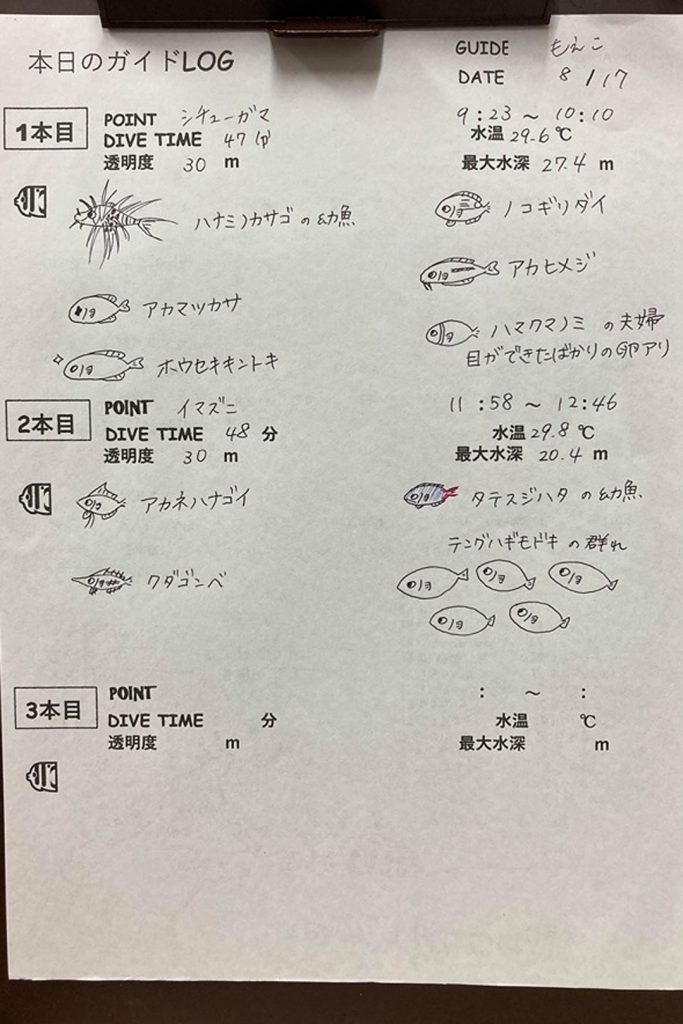 本日のガイドLOG
GUIDE もえこ
DATE 8/17
1本目
POINT シチューガマ
DIVE TIME 47分
透明度 30 m
9:23 ~ 10:10
水温 29.6℃
最大水深 27.4 m
ハナミノカサゴの幼魚
ノコギリダイ
アカヒメジ
アカマツカサ
ハマクマノミの夫婦
目ができたばかりの卵アリ
ホウセキキントキ
2本目
POINT イマズニ
DIVE TIME 48 分
透明度 30 m
11:58 ~ 12:46
水温 29.8℃
最大水深 20.4 m
アカネハナゴイ
タテスジハタの幼魚
テングハギモドキの群れ
クダゴンベ
3本目
POINT
DIVE TIME 分
透明度 m
: ~ :
水温 ℃
最大水深 m